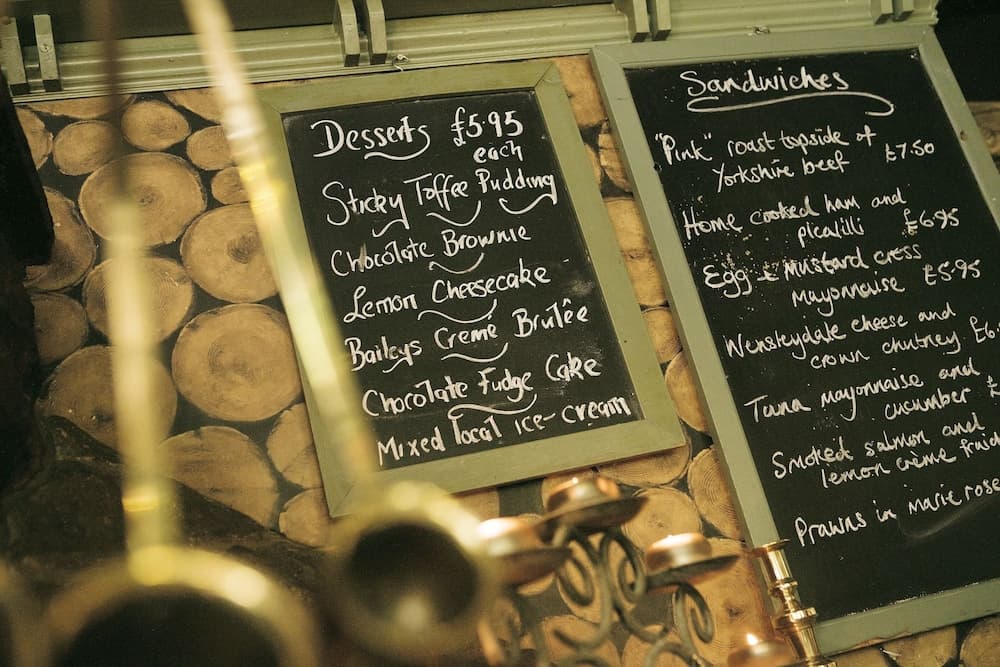 Desserts £5.95
each
Sticky Toffee Pudding
Chocolate Brownie
Lemon Cheesecake
Baileys Creme Brulêe
Chocolate Fudge Cake
Mixed local ice-cream
Sandwiches
"Pink" roast topside of
Yorkshire beef £7.50
Home cooked ham and
picalilli £6.95
Egg & mustard cress
mayonnaise £5.95
Wensleydale cheese and
crown chutney £6
Tuna mayonnaise and
cucumber £
Smoked salmon and
lemon crème fraic
Prawns in marie rose